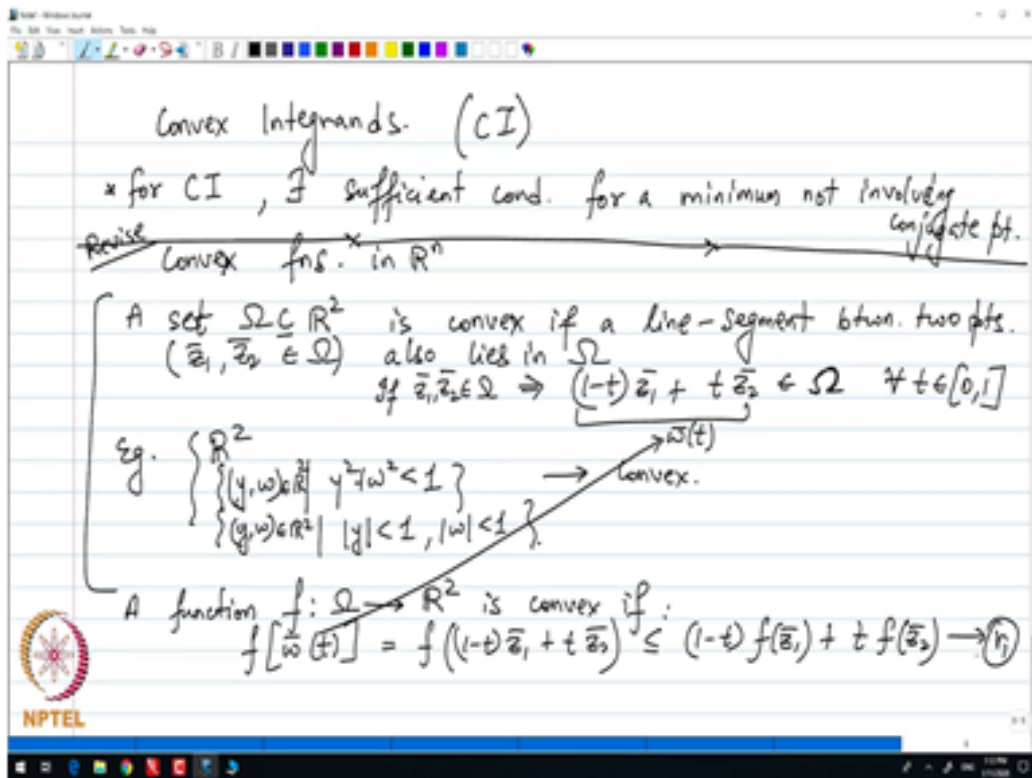 Convex Integrands. (CI)
* for CI, ∃ sufficient cond. for a minimum not involving
conjugate pt.
Revise
Convex fns. in ℝⁿ
A set Ω ⊆ ℝ² is convex if a line-segment btwn. two pts.
(z̄₁, z̄₂ ∈ Ω) also lies in Ω
If z̄₁, z̄₂ ∈ Ω ⇒ (1-t) z̄₁ + t z̄₂ ∈ Ω ∀ t ∈ [0,1]
w̄(t)
Eg. { ℝ²
{(y,w) ∈ ℝ² | y²+w² < 1} → Convex.
{(y,w) ∈ ℝ² | |y| < 1, |w| < 1}
A function f: Ω → ℝ² is convex if:
f[w̄(t)] = f((1-t) z̄₁ + t z̄₂) ≤ (1-t) f(z̄₁) + t f(z̄₂) → (r₁)
NPTEL